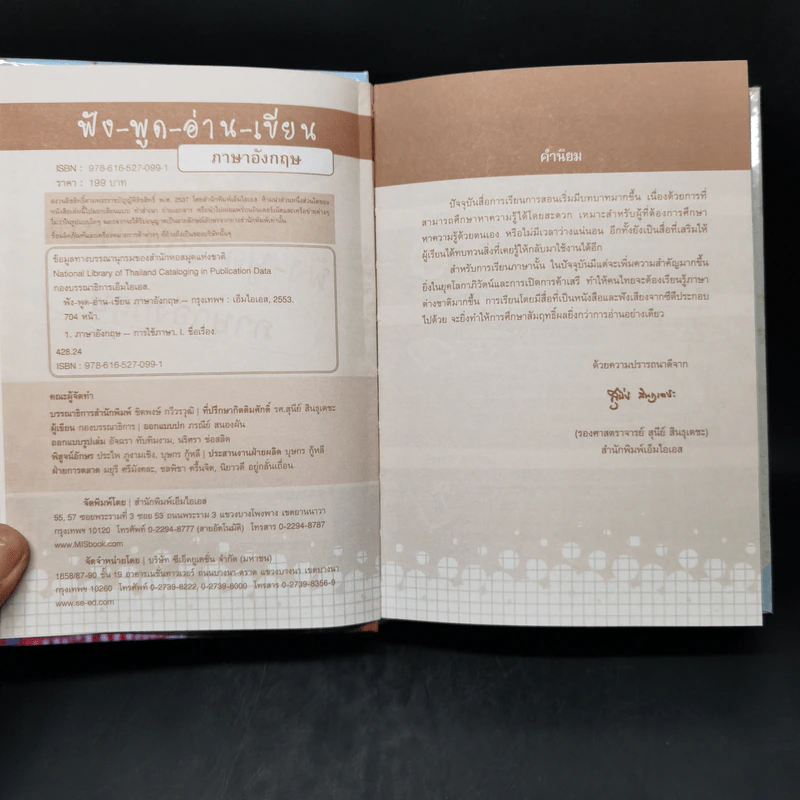 ฟัง-พูด-อ่าน-เขียน
ภาษาอังกฤษ
ISBN : 978-616-527-099-1
ราคา : 199 บาท
สงวนลิขสิทธิ์ตามพระราชบัญญัติลิขสิทธิ์ พ.ศ. 2537 โดยสำนักพิมพ์เอ็มไอเอส ห้ามนำส่วนหนึ่งส่วนใดของ
ข้อมูลทางบรรณานุกรมของสำนักหอสมุดแห่งชาติ
National Library of Thailand Cataloging in Publication Data
กองบรรณาธิการเอ็มไอเอส.
ฟัง-พูด-อ่าน-เขียน ภาษาอังกฤษ.-- กรุงเทพฯ : เอ็มไอเอส, 2553.
704 หน้า.
1. ภาษาอังกฤษ -- การใช้ภาษา. I. ชื่อเรื่อง.
428.24
ISBN : 978-616-527-099-1
คณะผู้จัดทำ
บรรณาธิการสำนักพิมพ์ ชิตพงษ์ กวีวรวุฒิ | ที่ปรึกษากิตติมศักดิ์ รศ.สุนีย์ สินธุเดชะ
ผู้เขียน กองบรรณาธิการ | ออกแบบปก ภรณีย์ สนองผัน
ออกแบบรูปเล่ม อัจฉรา ทับทิมงาม, นริศรา ช่อสลิด
พิสูจน์อักษร ประไพ ภูงามเชิง, บุษกร กู้หลี | ประสานงานฝ่ายผลิต บุษกร กู้หลี
ฝ่ายการตลาด มยุรี ศรีมังคละ, ชลพิชา ครื้นจิต, นิยาวดี อยู่กลั่นเถื่อน
จัดพิมพ์โดย | สำนักพิมพ์เอ็มไอเอส
55, 57 ซอยพระรามที่ 3 ซอย 53 ถนนพระราม 3 แขวงบางโพงพาง เขตยานนาวา
กรุงเทพฯ 10120 โทรศัพท์ 0-2294-8777 (สายอัตโนมัติ) โทรสาร 0-2294-8787
www.MISbook.com
จัดจำหน่ายโดย | บริษัท ซีเอ็ดยูเคชั่น จำกัด (มหาชน)
1858/87-90 ชั้น 19 อาคารเนชั่นทาวเวอร์ ถนนบางนา-ตราด แขวงบางนา เขตบางนา
กรุงเทพฯ 10260 โทรศัพท์ 0-2739-8222, 0-2739-8000 โทรสาร 0-2739-8356-9
www.se-ed.com
คำนิยม
ปัจจุบันสื่อการเรียนการสอนเริ่มมีบทบาทมากขึ้น เนื่องด้วยการที่
สามารถศึกษาหาความรู้ได้โดยสะดวก เหมาะสำหรับผู้ที่ต้องการศึกษา
หาความรู้ด้วยตนเอง หรือไม่มีเวลาว่างแน่นอน อีกทั้งยังเป็นสื่อที่เสริมให้
ผู้เรียนได้ทบทวนสิ่งที่เคยรู้ให้กลับมาใช้งานได้อีก
สำหรับการเรียนภาษานั้น ในปัจจุบันมีแต่จะเพิ่มความสำคัญมากขึ้น
ยิ่งในยุคโลกาภิวัตน์และการเปิดการค้าเสรี ทำให้คนไทยจะต้องเรียนรู้ภาษา
ต่างชาติมากขึ้น การเรียนโดยมีสื่อที่เป็นหนังสือและฟังเสียงจากซีดีประกอบ
ไปด้วย จะยิ่งทำให้การศึกษาสัมฤทธิ์ผลยิ่งกว่าการอ่านอย่างเดียว
ด้วยความปรารถนาดีจาก
สุนีย์ สินธุเดชะ
(รองศาสตราจารย์ สุนีย์ สินธุเดชะ)
สำนักพิมพ์เอ็มไอเอส